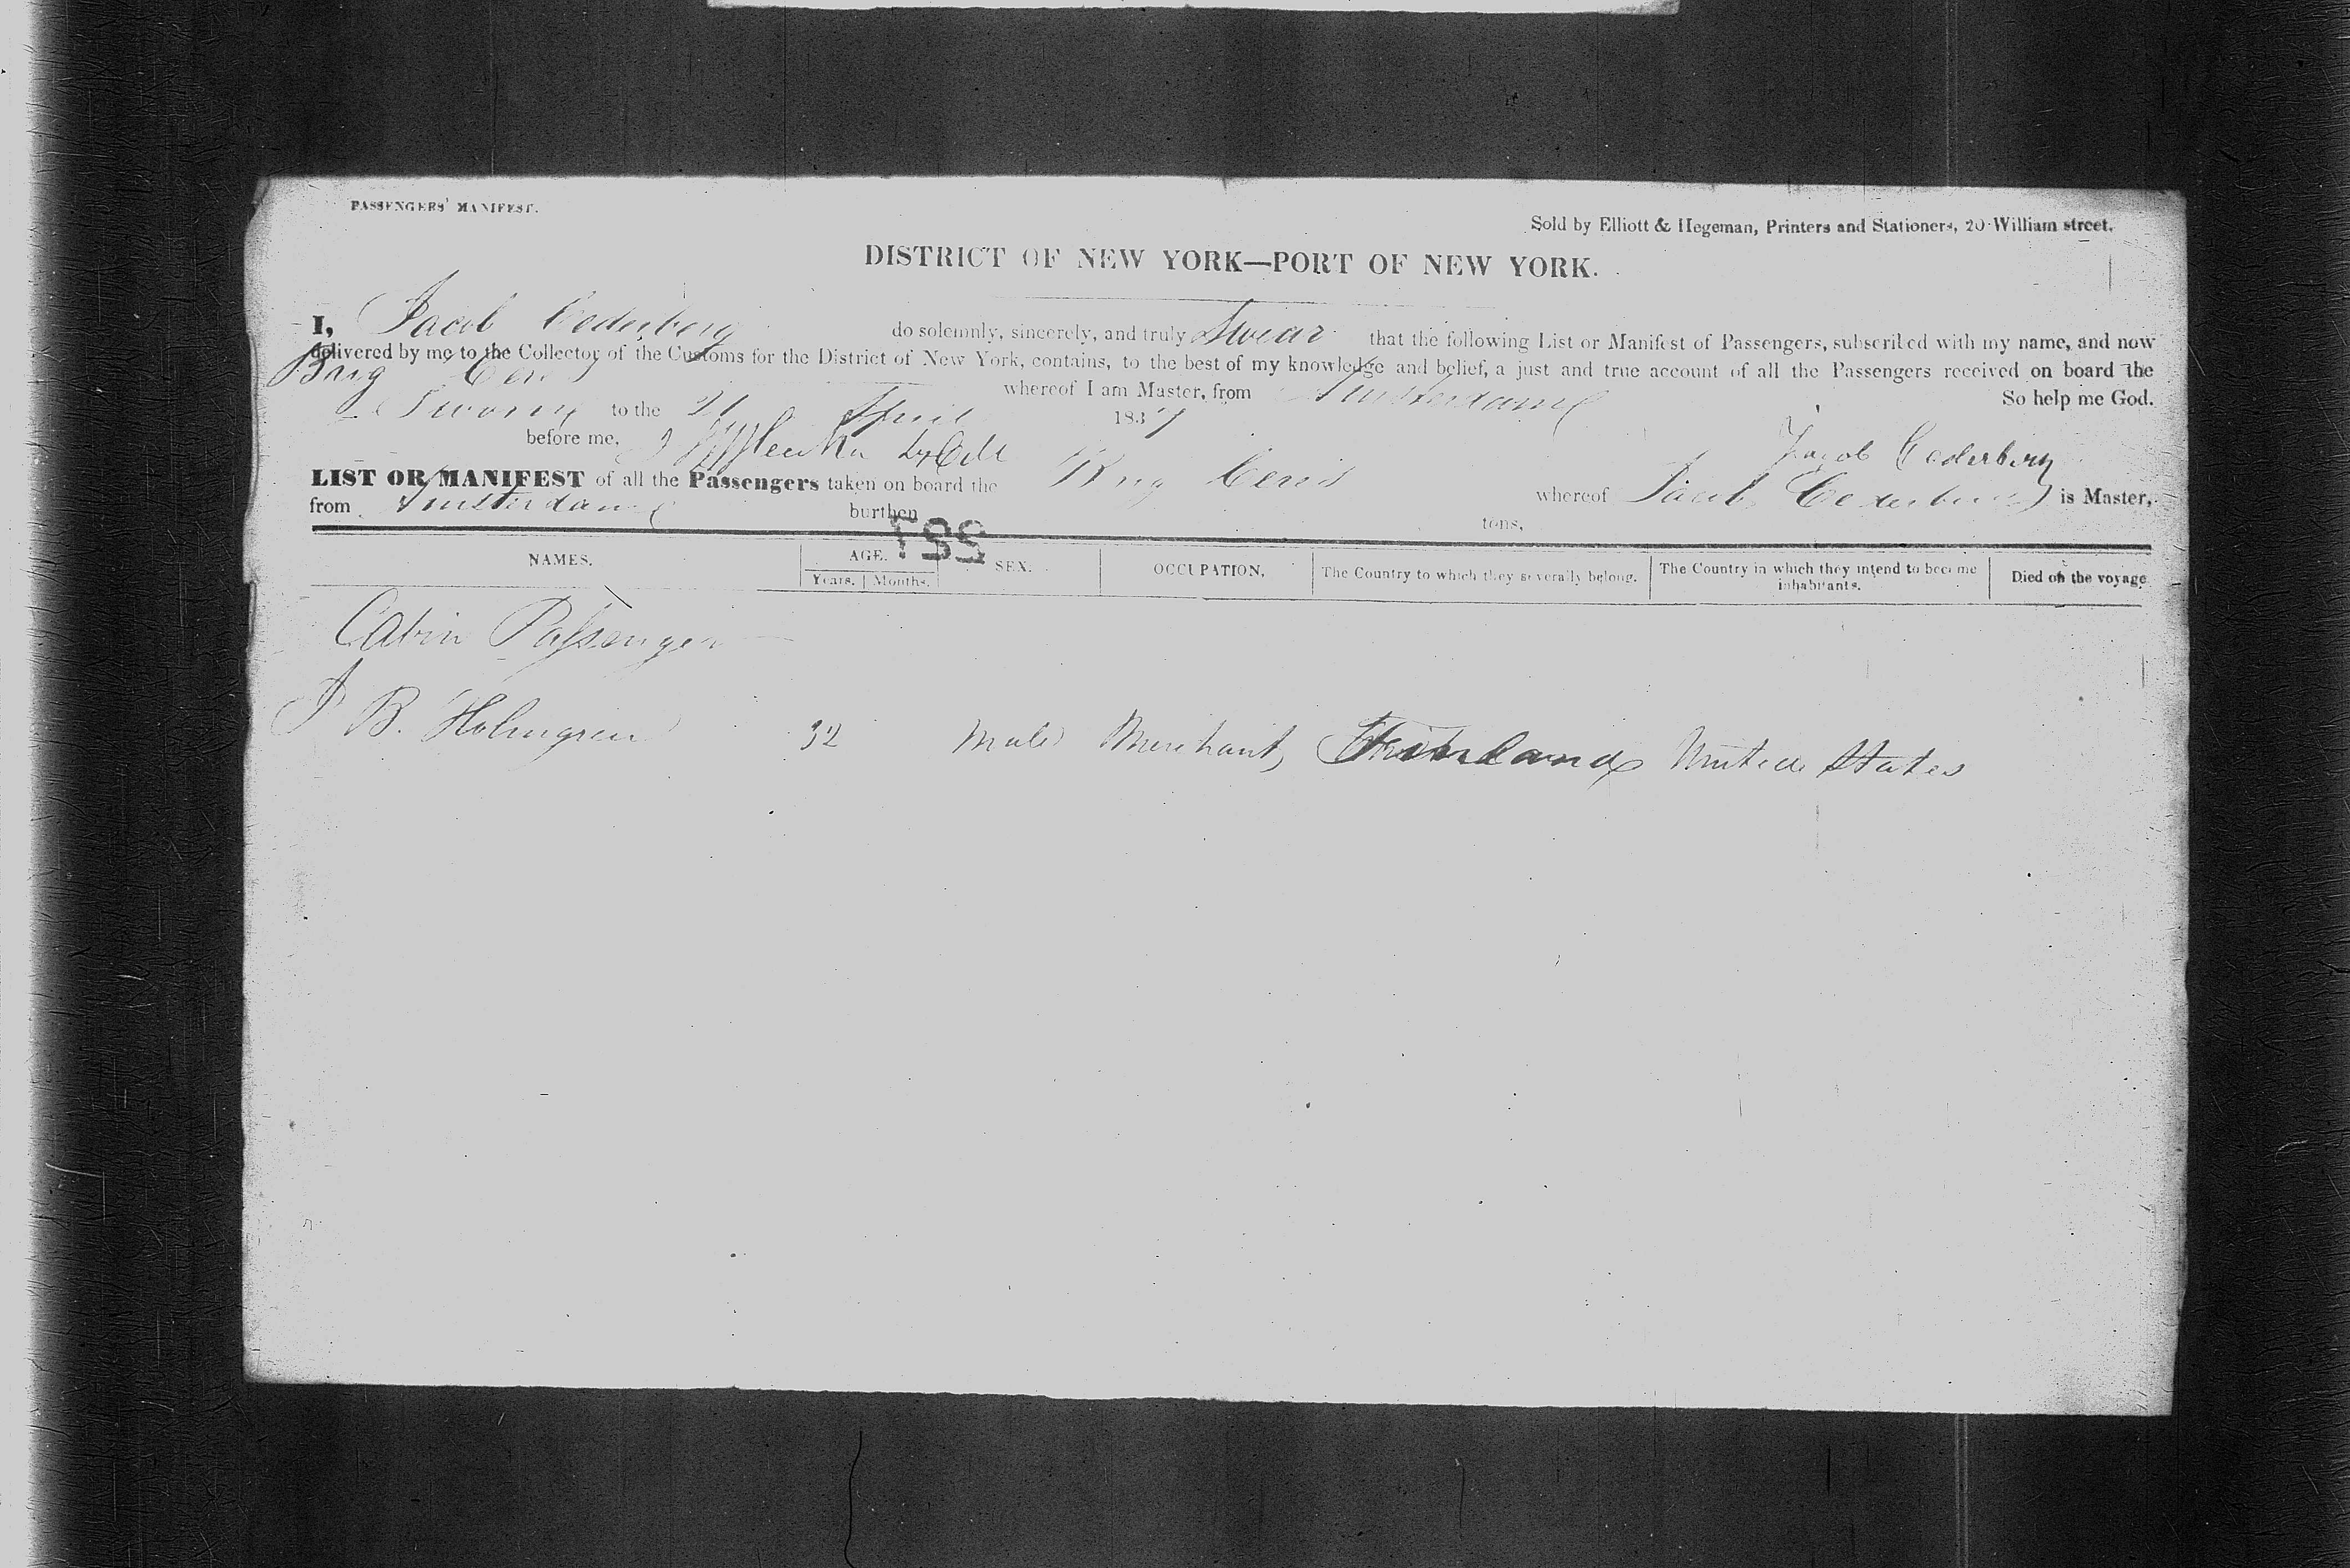 PASSENGERS' MANIFEST.
Sold by Elliott & Hegeman, Printers and Stationers, 20 William street.
DISTRICT OF NEW YORK—PORT OF NEW YORK.
I, Jacob Cederberg do solemnly, sincerely, and truly Swear that the following List or Manifest of Passengers, subscribed with my name, and now
delivered by me to the Collector of the Customs for the District of New York, contains, to the best of my knowledge and belief, a just and true account of all the Passengers received on board the
Brig whereof I am Master, from Amsterdam So help me God.
Sworn to the 21 April 1837
before me, Jacob Cederberg
LIST OR MANIFEST of all the Passengers taken on board the Brig Ceres whereof Jacob Cederberg is Master,
from Amsterdam burthen tons,
551
NAMES. AGE. SEX. OCCUPATION. The Country to which they severally belong. The Country in which they intend to become inhabitants. Died on the voyage
Years. Months.
Cabin Passenger
J B. Holmgren 32 Male Merchant Finland United States